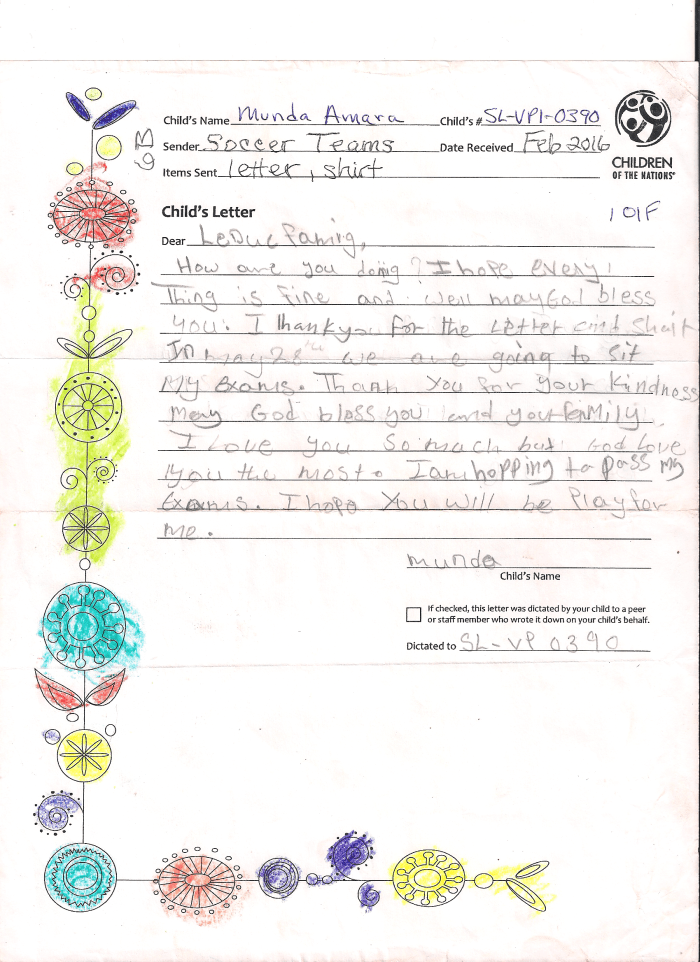 Child's Name Munda Amara Child's # SL-VP1-0390
Sender Soccer Teams Date Received Feb 2016
M 9
Items Sent Letter, shirt
CHILDREN
OF THE NATIONS®
Child's Letter
101F
Dear LeDuc Family,
How are you doing? I hope every
Thing is fine and well may God bless
you. I thank you for the Letter and Shait
In may 28th we are going to sit
My exams. Thank You for your kindness
May God bless you and your family.
I Love you So much but God Love
you the most. I am hopping to pass my
Exams. I hope You will be Play for
me.
munda
Child's Name
If checked, this letter was dictated by your child to a peer
or staff member who wrote it down on your child's behalf.
Dictated to SL-VP 0390